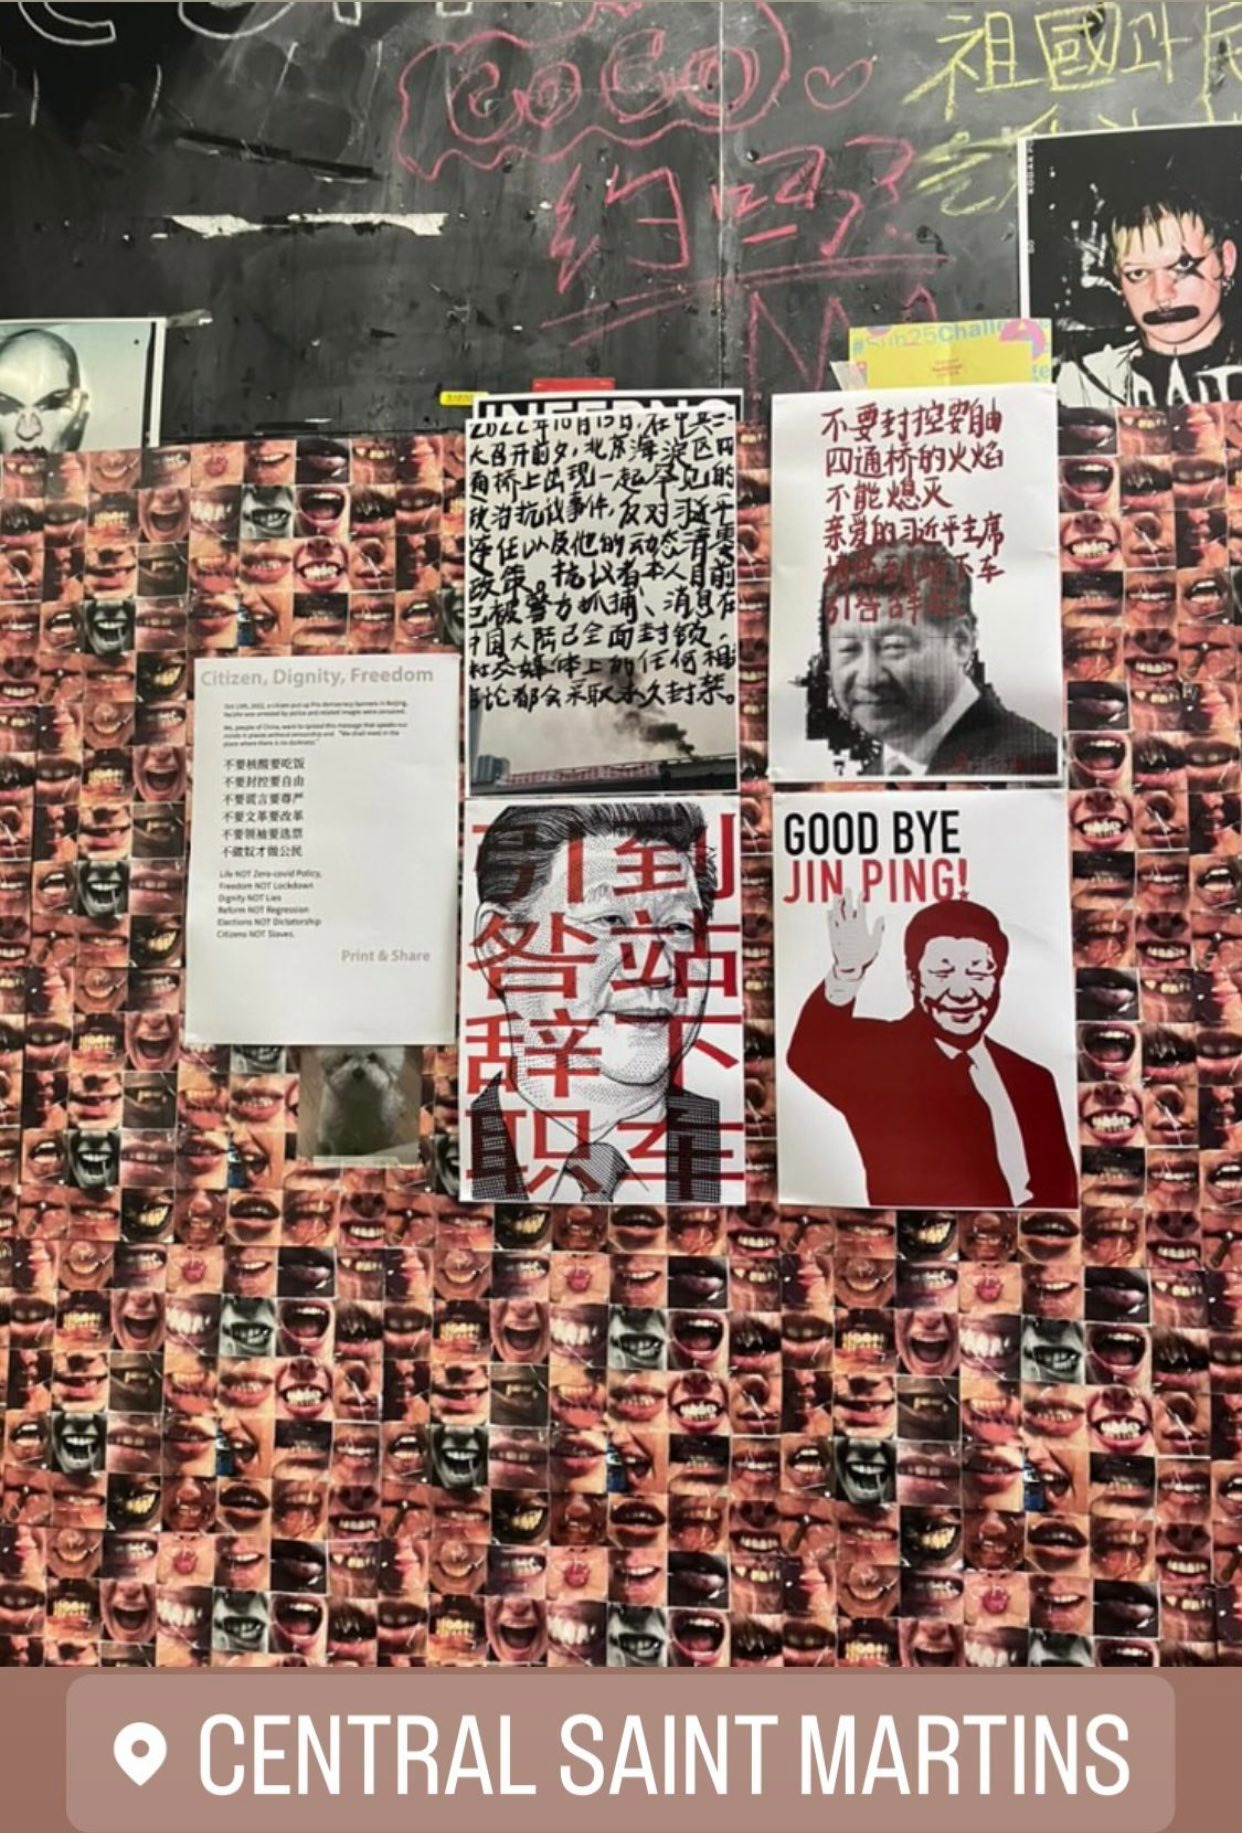 COCO
约吗?
祖國
INFERNO
#Sub25Challenge
2022年10月13日,在中共二
大召开前夕,北京海淀区四
通桥上出现一起罕见的
政治抗议事件,反对习近平
连任以及他的动态清零
政策。抗议者本人目前
已被警方抓捕、消息在
中国大陆已全面封锁,
社交媒体上的任何相
言论都会采取永久封禁。
不要封控要自由
四通桥的火焰
不能熄灭
亲爱的习近平主席
下车
引咎辞职
Citizen, Dignity, Freedom
Oct 13th, 2022, a citizen put up Pro-democracy banners in Beijing,
he/she was arrested by police and related images were censored.
We, people of China, want to spread this message that speaks our
minds in places without censorship and "We shall meet in the
place where there is no darkness."
不要核酸要吃饭
不要封控要自由
不要谎言要尊严
不要文革要改革
不要领袖要选票
不做奴才做公民
Life NOT Zero-covid Policy,
Freedom NOT Lockdown
Dignity NOT Lies
Reform NOT Regression
Elections NOT Dictatorship
Citizens NOT Slaves.
Print & Share
到站下车
引咎辞职
GOOD BYE
JIN PING!
CENTRAL SAINT MARTINS